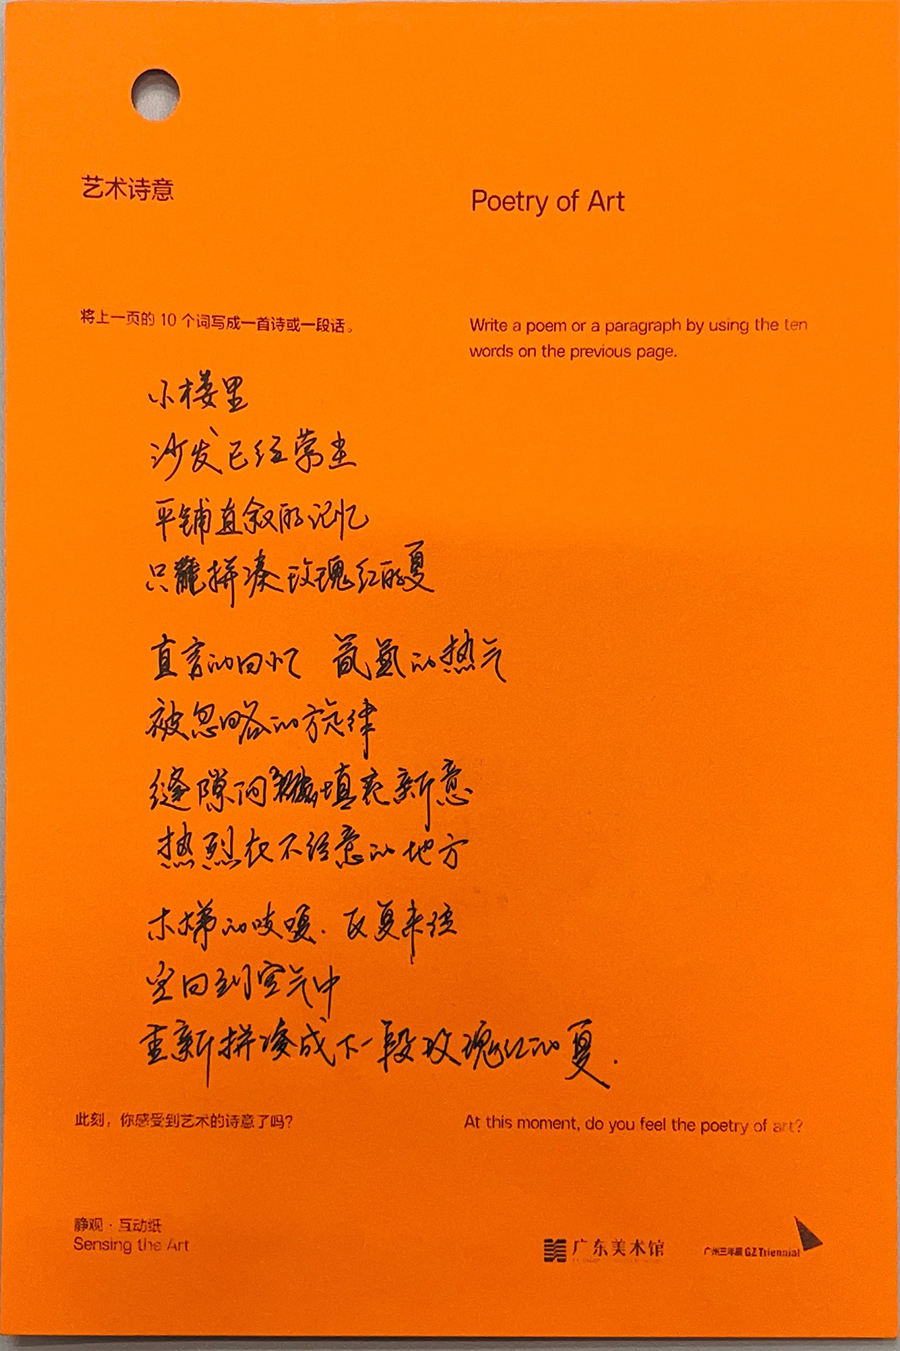 艺术诗意
Poetry of Art
将上一页的 10 个词写成一首诗或一段话。
Write a poem or a paragraph by using the ten
words on the previous page.
小楼里
沙发已经蒙尘
平铺直叙的记忆
只能拼凑玫瑰红的夏
直言的回忆 氤氲的热气
被忽略的旋律
缝隙间填充新意
热烈在不经意的地方
木梯的吱嘎.反复来往
空回到空气中
重新拼凑成下一段玫瑰红的夏.
此刻，你感受到艺术的诗意了吗?
At this moment, do you feel the poetry of art?
静观·互动纸
Sensing the Art
广东美术馆
广州三年展 GZ Triennial